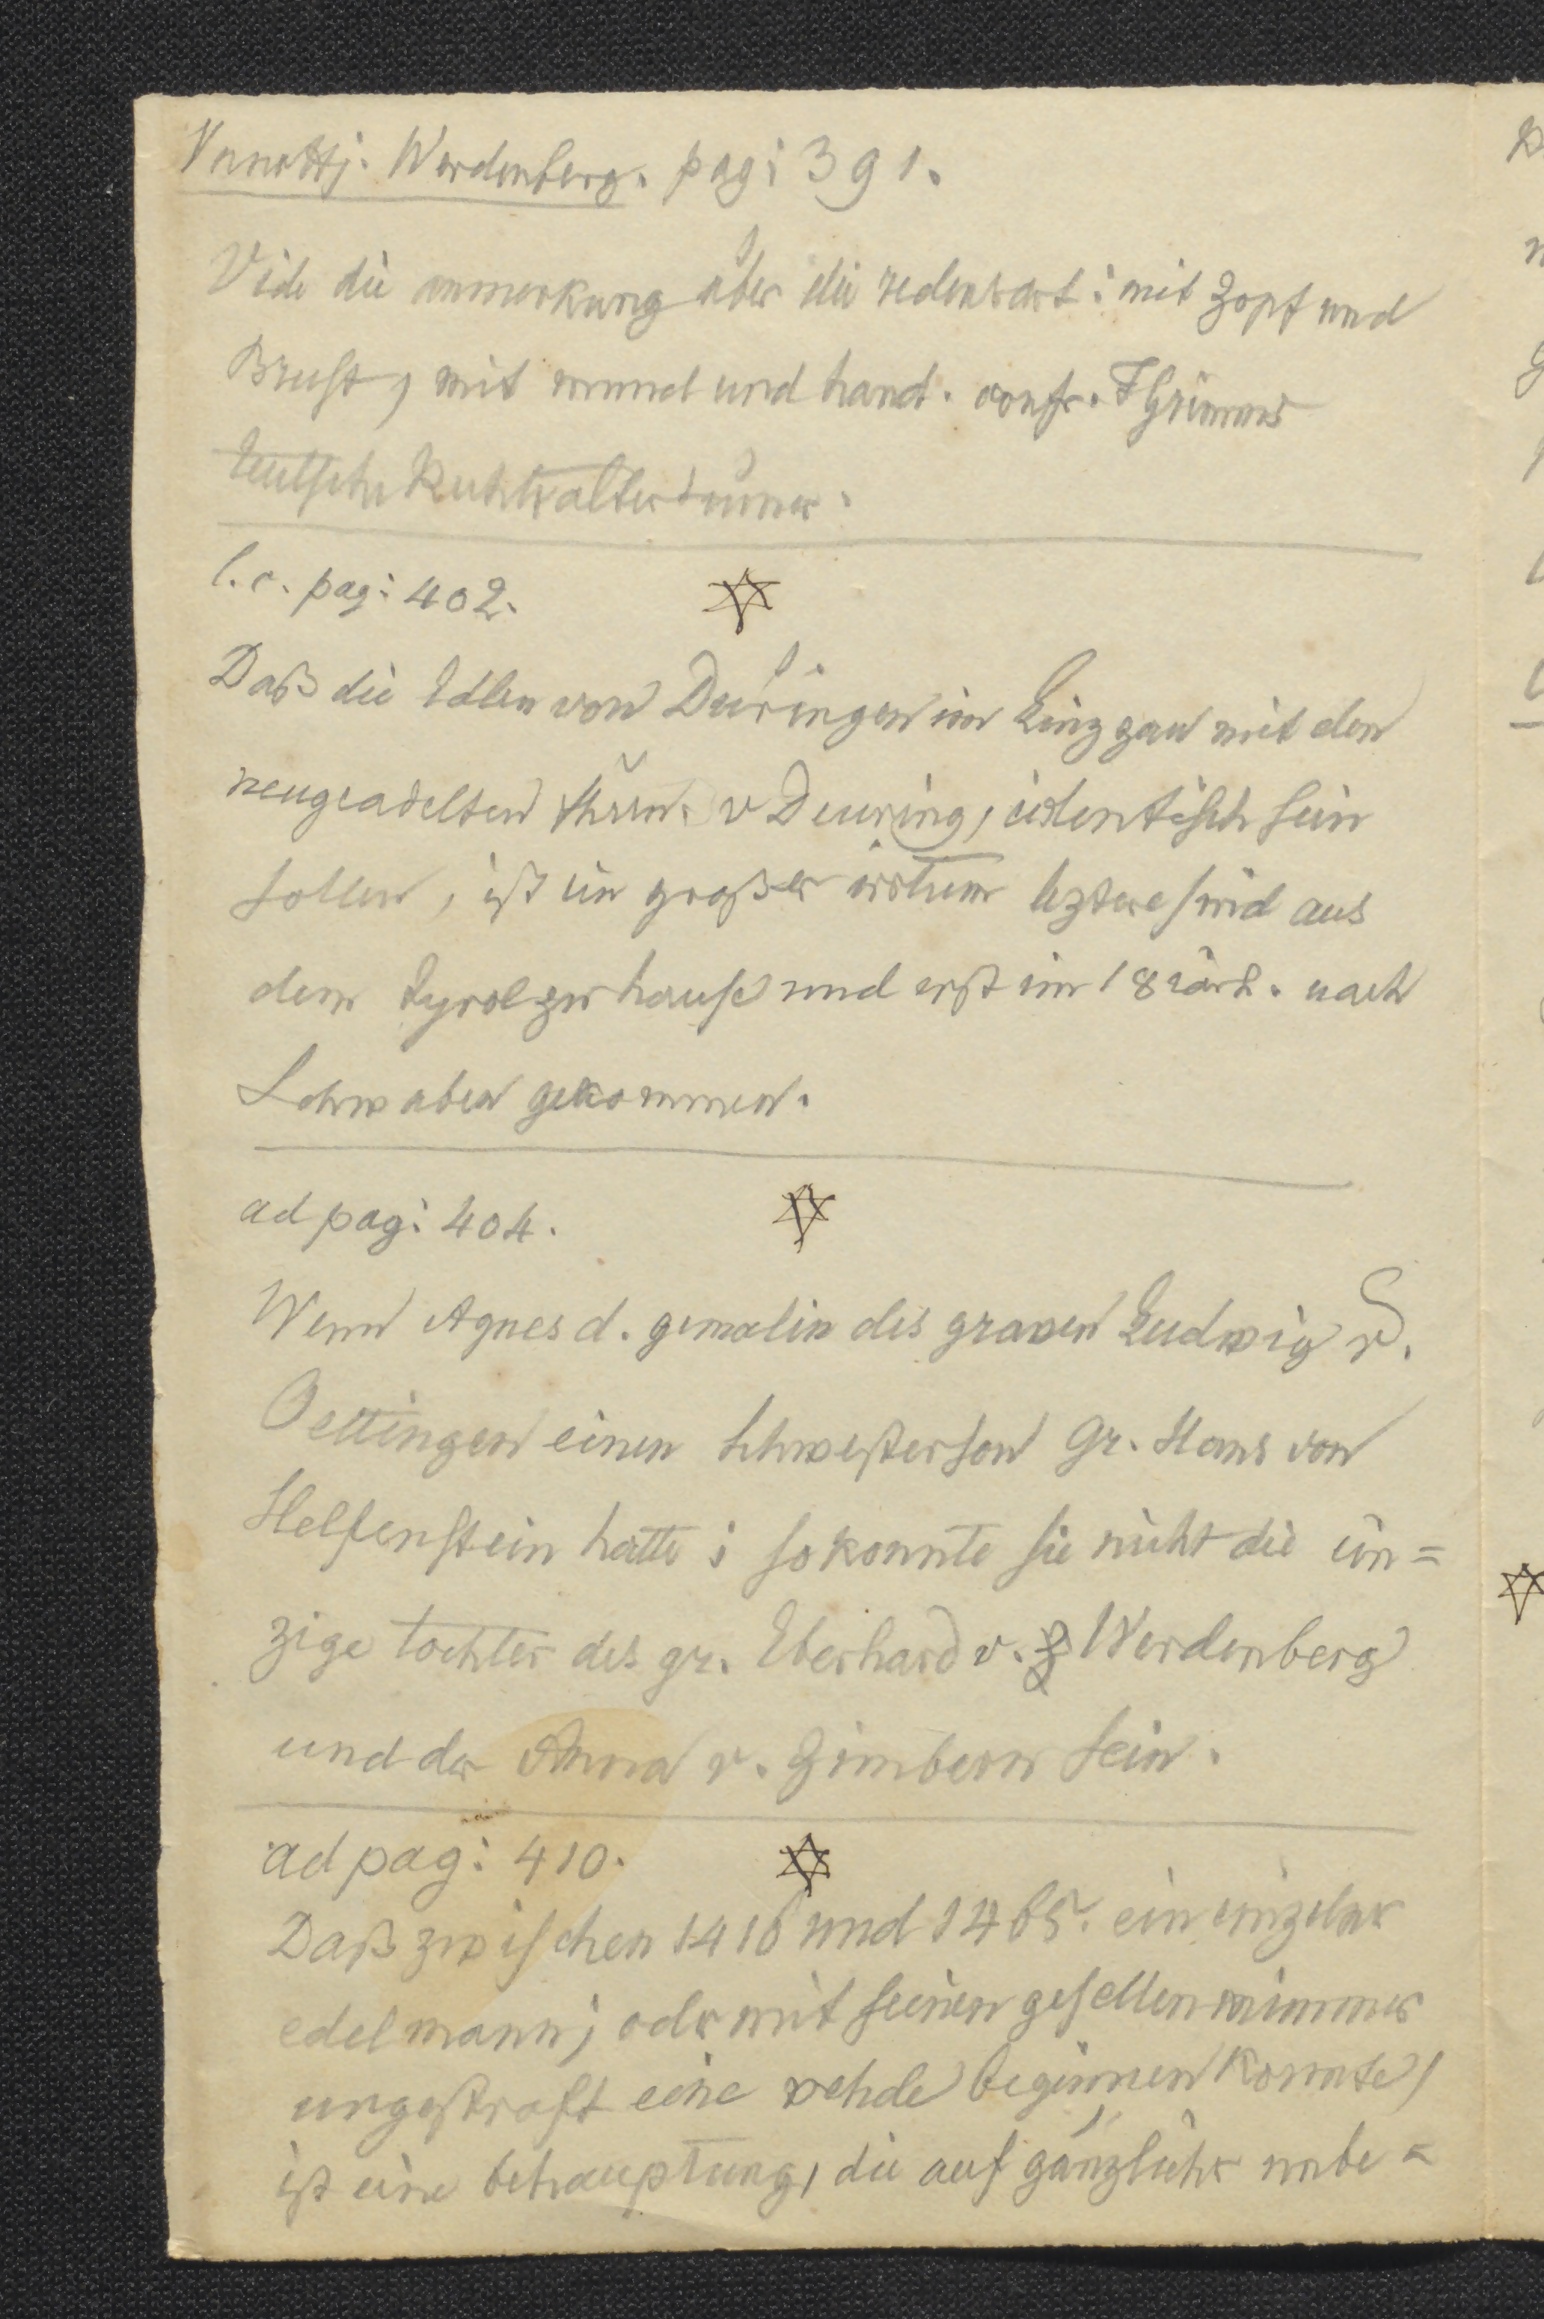 Vanottj. Werdenberg. pag: 391.
Vide die anmerkung über die redensart: mit Zopf und
Brust, mit mund und hand. confr. Grimms
teutsche Rechtsaltertümer.
l.c. pag: 402.
Daß die Edlen von Deüringen im Linzgau mit den
neugeadelten v Deuring, identisch sein
sollen, ist ein großer irrtum leztere sind aus
dem Tyrol zu hause und erst im 18 iarh. nach
Schwaben gekommen.
ad pag: 404.
Wenn Agnes d. gemalin des graven Ludwig v.
Oettingen einen schwesterson Gr. Hans von
Helfenstein hatte; so konnte sie nicht die ein=
zige tochter des gr. Eberhard v. Werdenberg
und der Anna v. Zimbern sein.
ad pag: 410.
Daß zwischen 1416 und 1465. ein einzelner
edelmann; oder mit seinen gesellen nimmer
ungestraft eine vehde beginnen konnte,
ist eine behauptung, die auf gänzlicher unbe=